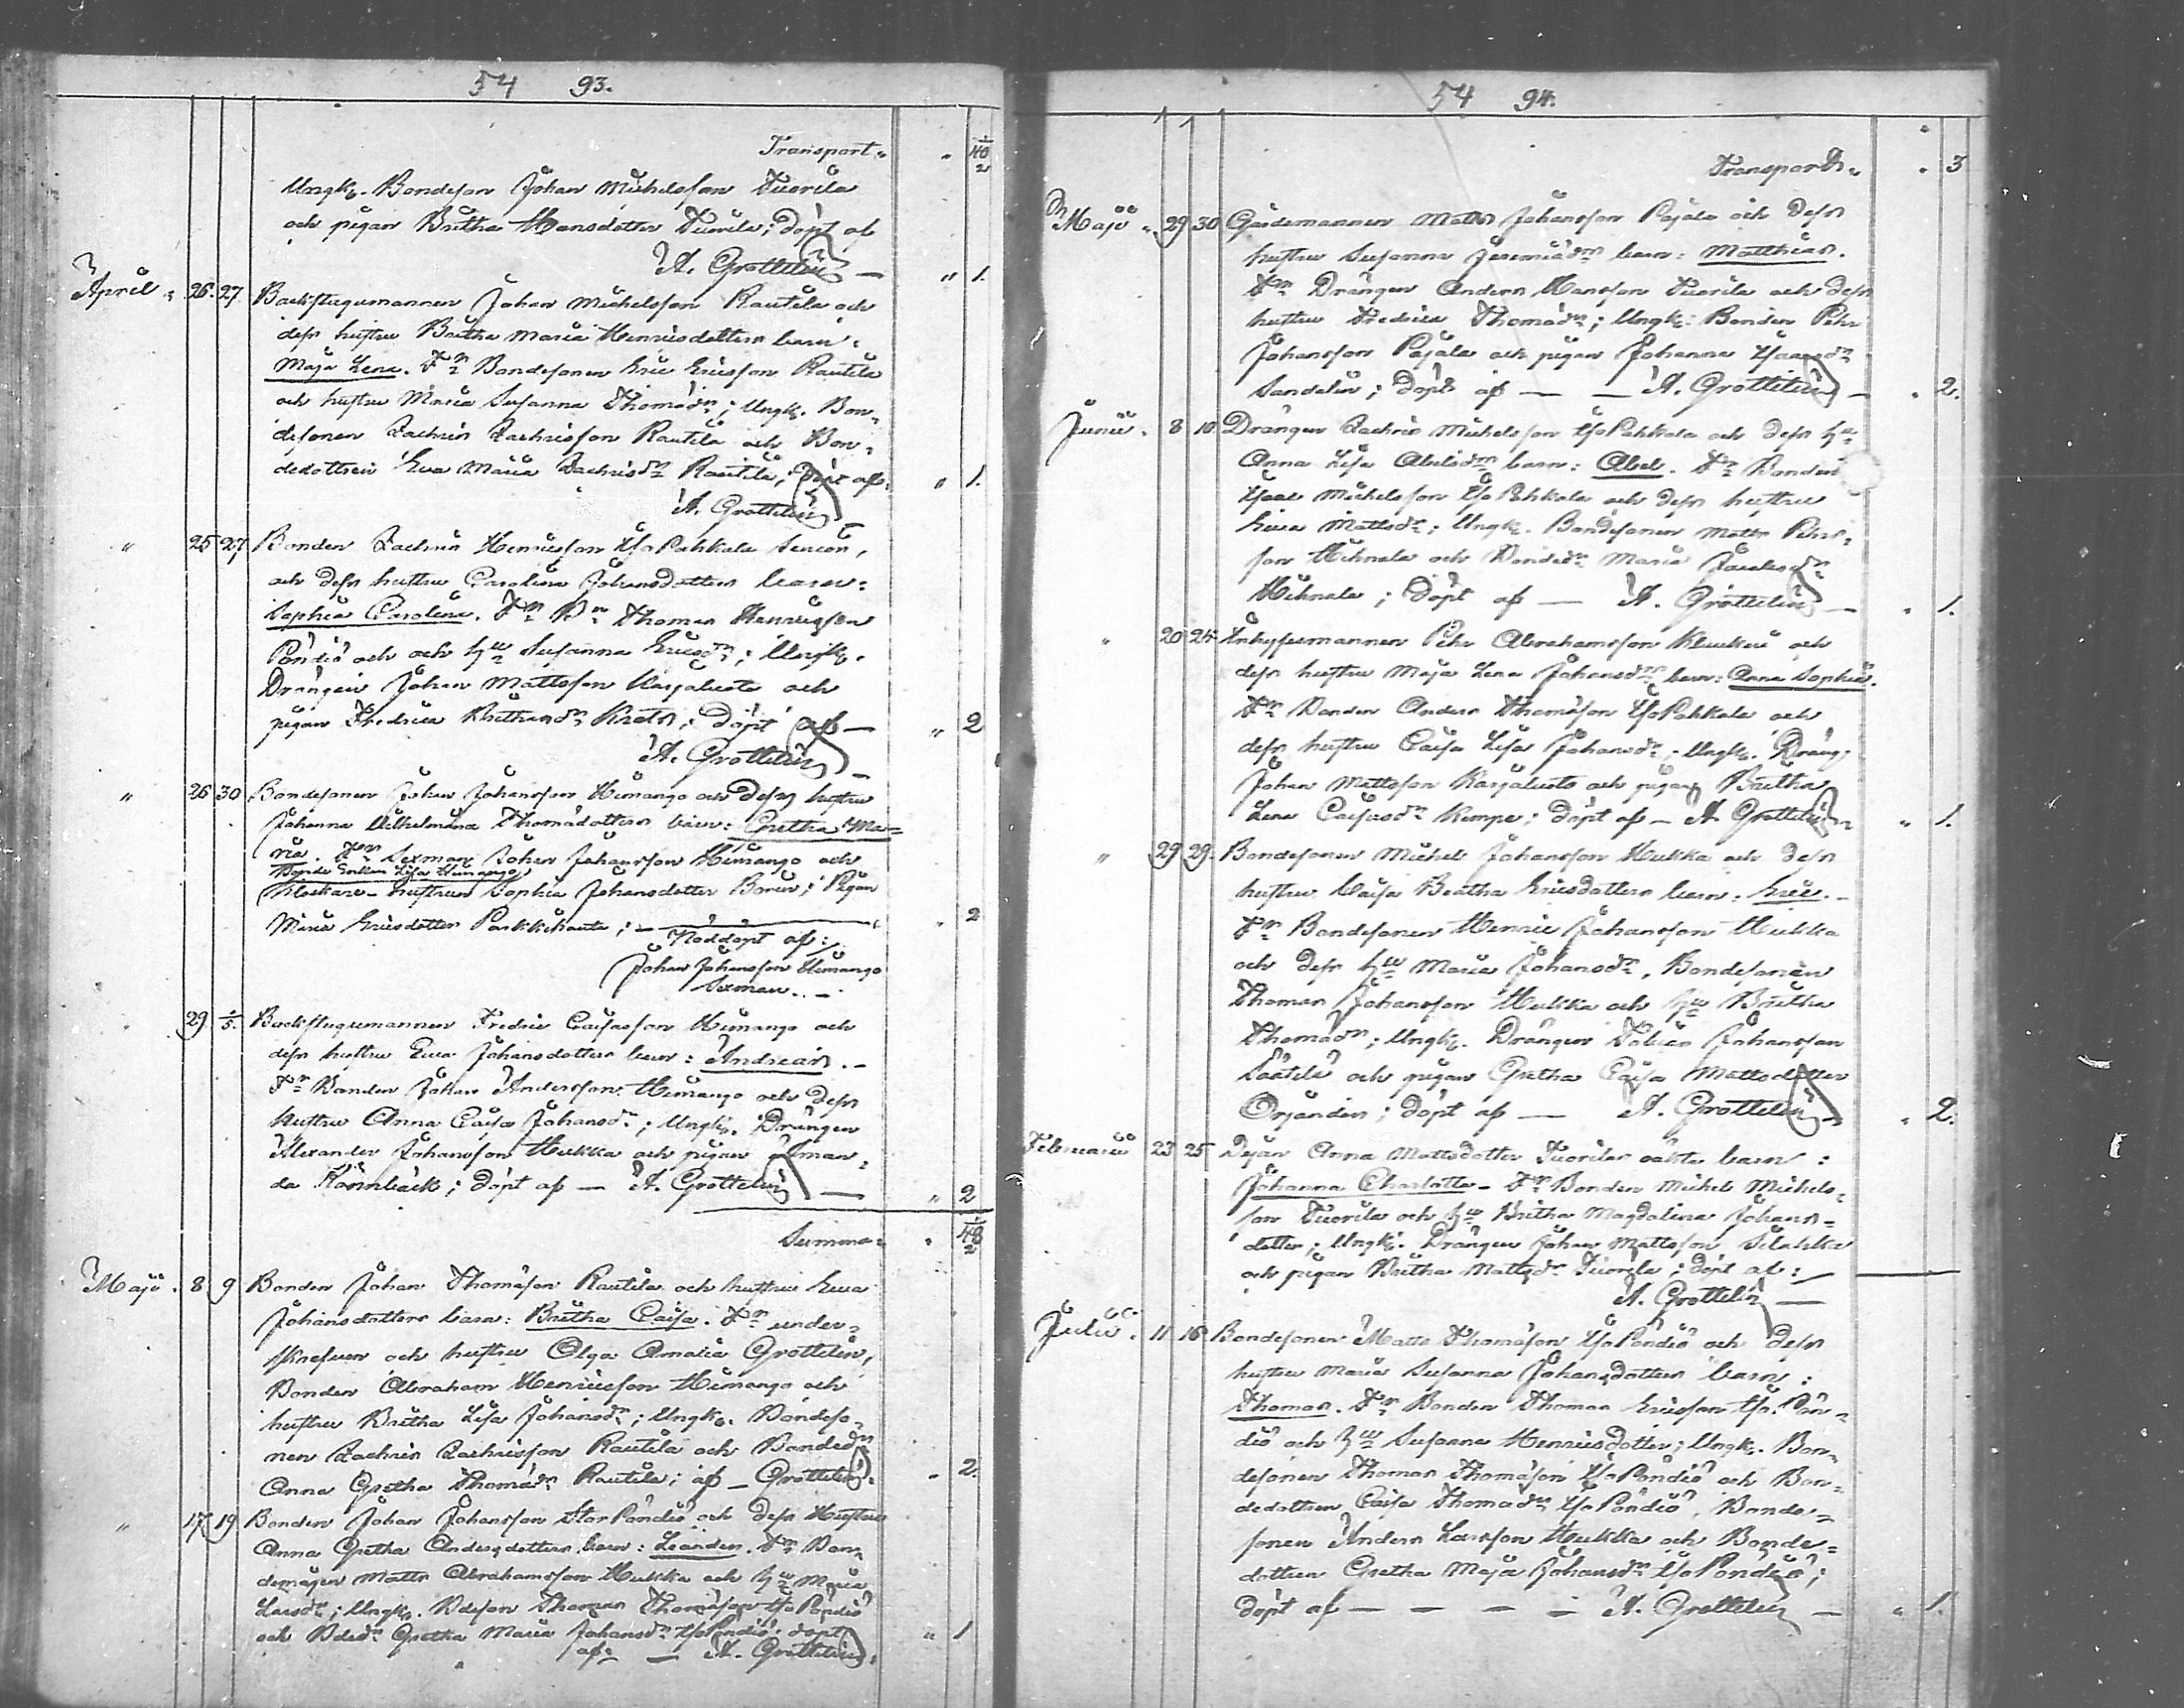 54 93.
Transport „ „ 40 2
Ungk. Bondeson Johan Michelsson Tuorila
och pigan Britha Hansdotter Tuorila; döpt af
A. Grottelin — „ 1.
April „ 26. 27. Backstugumannen Johan Michelsson Rautila och
dess hustru Britha Maria Henricsdotters barn:
Maja Lena. Fr Bondesonen Eric Ericsson Rautila
och hustru Maria Susanna Thomædr; Ungk. Bon-
desonen Zachris Zachrisson Rautila och Bon-
dedottren Eva Maria Zachrisdr Rautila; döpt af „ 1.
A. Grottelin
„ 25 27 Bonden Zachris Henricsson IsoPahkala
och dess hustru Carolina Johansdotters barn:
Sophia Carolina. Fr Bn Thomas Henricsson
Pöndiö och hu Susanna Ericsdr; Ungk.
Drängen Johan Mattsson Karjaluoto och
pigan Fredrica döpt af — „ 2
A. Grottelin
„ 26 30 Bondesonen Johan Johansson Himango och dess hustru
Johanna Wilhelmina Thomædotters barn: Gretha Ma-
ria. Fr Sexman Johan Johansson Himango och
Bonde Enkan Lisa Himango,
Klockare-hustrun Sophia Johansdotter; Pigan
Maria Ericsdotter; „ 2
Nöddöpt af:
Johan Johansson Himango
Sexman. —
29 1/5. Backstugumannen Fredric Caisasson Himango och
dess hustru Eva Johansdotters barn: Andreas. —
Fr Bonden Johan Andersson Himango och dess
hustru Anna Caisa Johansdr; Ungk. Drängen
Alexander Johansson Hukka och pigan Aman-
da Kärnbäck; döpt af — A. Grottelin — „ 2
Summa „ 48 2
Maji. 8 9 Bonden Johan Thomasson Rautila och hustru Eva
Johansdotters barn: Britha Caisa. Fr under-
skrefven och hustru Olga Amalia Grottelin,
Bonden Abraham Henricsson Himango och
hustru Britha Lisa Johansdr; Ungk. Bondeso-
nen Zachris Zachrisson Rautila och Bondedn
Anna Gretha Thomædr Rautila; af — Grottelin. „ 2.
„ 17 19 Bonden Johan Johansson StorPöndiö och dess Hustru
Anna Gretha Andersdotters barn: Leander. Fr Bon-
demågen Matts Abrahamsson Hukka och hu Maria
Larsdr; Ungk. Bdeson Thomas Thomasson IsoPöndiö
och Bdedr Gretha Maria Johansdr IsoPöndiö; döpt „ 1
af — A. Grottelin.
54 94.
Transport „ „ 3
Maji „ 29 30 Gårdsmannen Matts Johansson Pajala och dess
hustru Susanna Jeremiædrs barn: Matthias.
Fr Drängen Anders Hansson Tuorila och dess
hustru Fredrica Thomædr; Ungk: Bonden Pehr
Johansson Pajala och pigan Johanna Isaacsdr
Sandelin; döpt af — — A. Grottelin — „ 2.
Junii. 8 10 Drängen Zachris Michelsson IsoPahkala och dess hu
Anna Lisa Abelsdrs barn: Abel. Fr Bonden
Isaac Michelsson IsoPahkala och dess hustru
Mattsdr; Ungk. Bondesonen Matts Pehrs-
son Hihnala och Bondedr Maria
Hihnala; döpt af — A. Grottelin — „ 1.
„ 20 24 Inhysesmannen Pehr Abrahamsson och
dess hustru Maja Lena Johansdrs barn: Anna Sophia.
Fr Bonden Anders Thomasson IsoPahkala och
dess hustru Caisa Lisa Johansdr; Ungk. Dräng.
Johan Mattsson Karjaluoto och pigan Britha
Lena Caisasdr Kempe; döpt af — A. Grottelin „ 1.
„ 29 29. Bondesonen Michel Johansson Hukka och dess
hustru Caisa Beatha Ericsdotters barn: Eric. —
Fr Bondesonen Henric Johansson Hukka
och dess hu Maria Johansdr, Bondesonen
Thomas Johansson Hukka och hu Britha
Thomædr; Ungk. Drängen Johansson
och pigan Gretha Caisa Mattsdotter
Orjandin; döpt af — A. Grottelin „ 2.
Februarii 23 25 Pigan Anna Mattsdotter Tuorilas oäkta barn:
Johanna Charlotta — Fr Bonden Michel Michels-
son Tuorila och hu Britha Magdalina Johans-
dotter; Ungk. Drängen Johan Mattsson
och pigan Britha Mattsdr Tuorila; döpt af:
A. Grottelin —
Julii. 11 16 Bondesonen Matts Thomasson IsoPöndiö och dess
hustru Maria Susanna Johansdotters barn:
Thomas. Fr Bonden Thomas Ericsson IsoPön-
diö och hu Susanna Henricsdotter; Ungk. Bon-
desonen Thomas Thomasson IsoPöndiö och Bon-
dedottren Caisa Thomædr IsoPöndiö, Bonde-
sonen Anders Larsson Hukka och Bonde-
dottren Gretha Maja Johansdr IsoPöndiö;
döpt af — — — — A. Grottelin — „ 1.